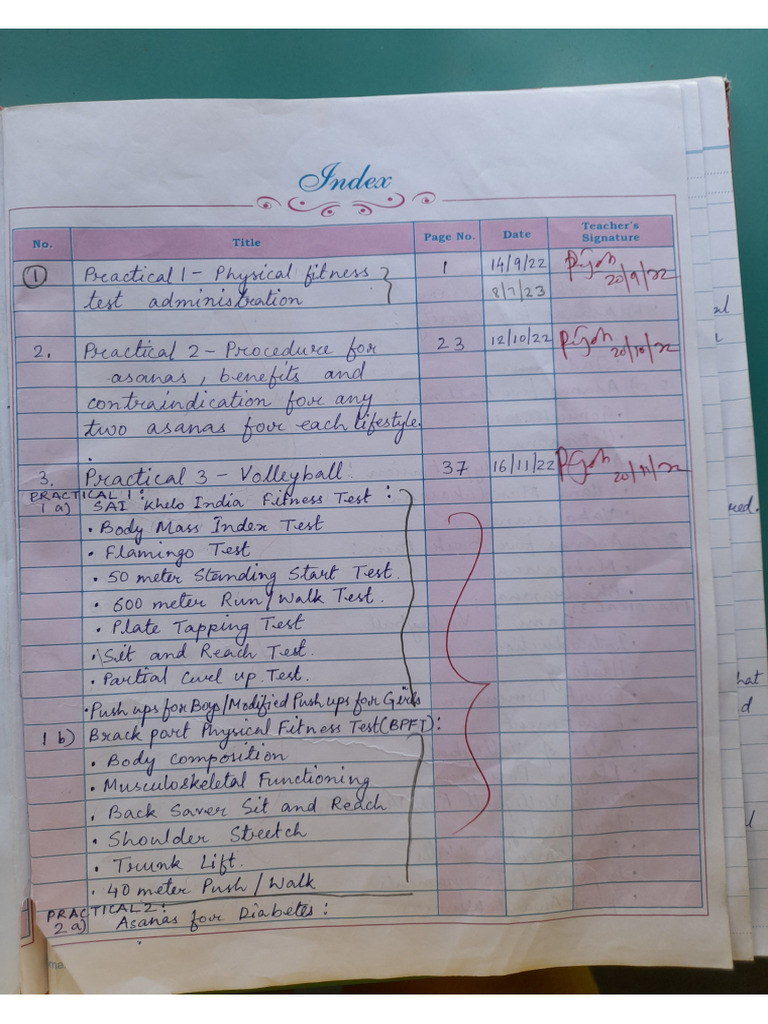 Index
No. Title Page No. Date Teacher's Signature
1 Practical 1 - Physical fitness 1 14/9/22 20/9/22
test administration 8/7/23
2. Practical 2 - Procedure for 23 12/10/22 20/10/22
asanas, benefits and
contraindication for any
two asanas for each lifestyle.
3. Practical 3 - Volleyball 37 16/11/22 20/11/22
PRACTICAL 1:
1 a) SAI Khelo India Fitness Test :
• Body Mass Index Test
• Flamingo Test
• 50 meter Standing Start Test.
• 600 meter Run/Walk Test.
• Plate Tapping Test
• Sit and Reach Test.
• Partial Curl up Test.
• Push ups for Boys/Modified Push ups for Girls
1 b) Brack port Physical Fitness Test(BPFT):
• Body Composition
• Musculoskeletal Functioning
• Back Saver Sit and Reach
• Shoulder Stretch
• Trunk Lift.
• 40 meter Push/Walk
PRACTICAL 2:
2 a) Asanas for Diabetes :
red.
hat
d